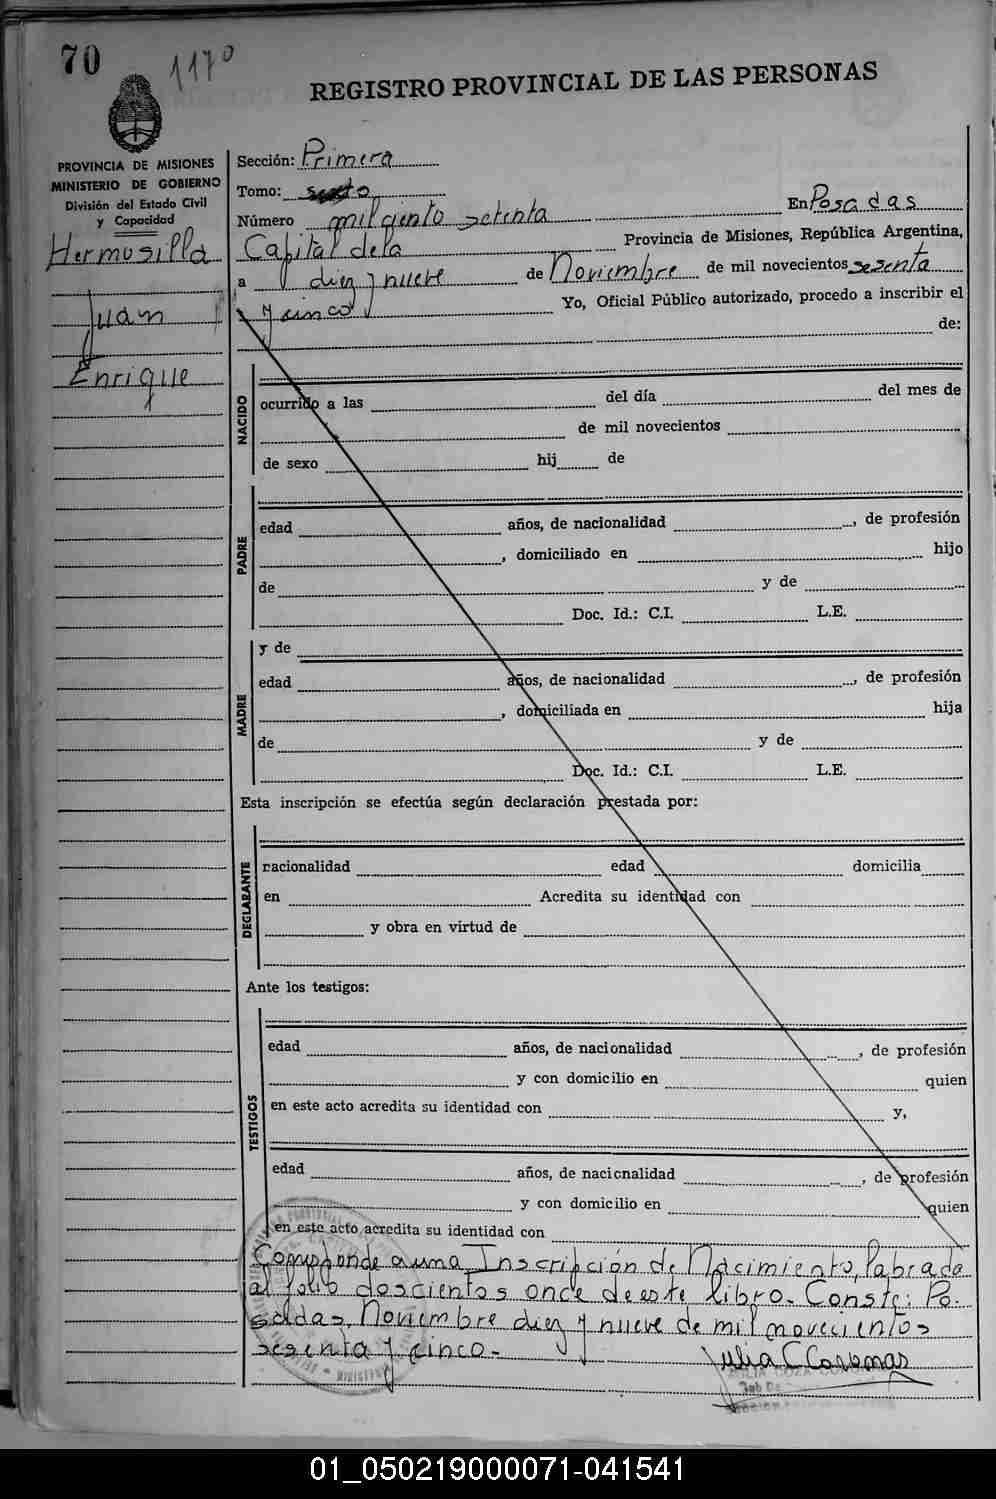 70
1170
REGISTRO PROVINCIAL DE LAS PERSONAS
PROVINCIA DE MISIONES
MINISTERIO DE GOBIERNO
División del Estado Civil
y Capacidad
Hermosilla
Juan
Enrique
Sección: Primera
Tomo: sexto
Número mil ciento setenta En Posadas
Capital de la Provincia de Misiones, República Argentina,
a diez y nueve de Noviembre de mil novecientos sesenta
y cinco Yo, Oficial Público autorizado, procedo a inscribir el
de:
NACIDO
ocurrido a las del día del mes de
de mil novecientos
de sexo hij de
PADRE
edad años, de nacionalidad , de profesión
, domiciliado en hijo
de y de
Doc. Id.: C.I. L.E.
MADRE
y de
edad años, de nacionalidad , de profesión
, domiciliada en hija
de y de
Doc. Id.: C.I. L.E.
Esta inscripción se efectúa según declaración prestada por:
DECLARANTE
nacionalidad edad domicilia
en Acredita su identidad con
y obra en virtud de
Ante los testigos:
TESTIGOS
edad años, de nacionalidad , de profesión
y con domicilio en quien
en este acto acredita su identidad con y,
edad años, de nacionalidad , de profesión
y con domicilio en quien
en este acto acredita su identidad con
a una Inscripción de Nacimiento, labrada
al folio doscientos once de este libro. Conste: Po-
sadas, Noviembre diez y nueve de mil novecientos
sesenta y cinco.-
Julia C Coronas
01_050219000071-041541